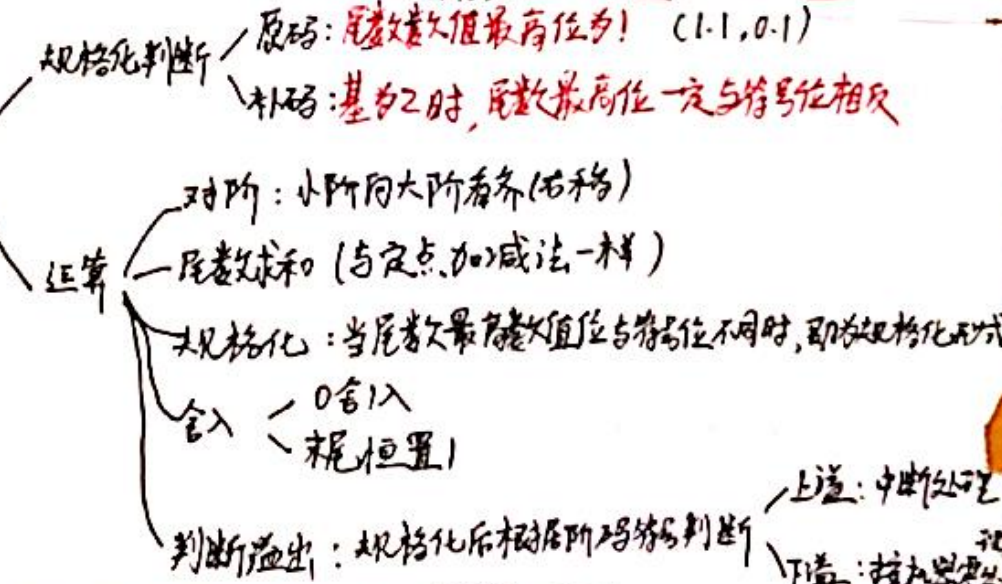 规格化判断
原码：尾数数值最高位为1 (1.1,0.1)
补码：基为2时，尾数最高位一定与符号位相反
运算
对阶：小阶向大阶看齐(右移)
尾数求和(与定点加减法一样)
规格化：当尾数最高数值位与符号位不同时，即为规格化形式
舍入
0舍1入
末尾恒置1
判断溢出：规格化后根据阶码符号判断
上溢：中断处理
下溢：按机器零